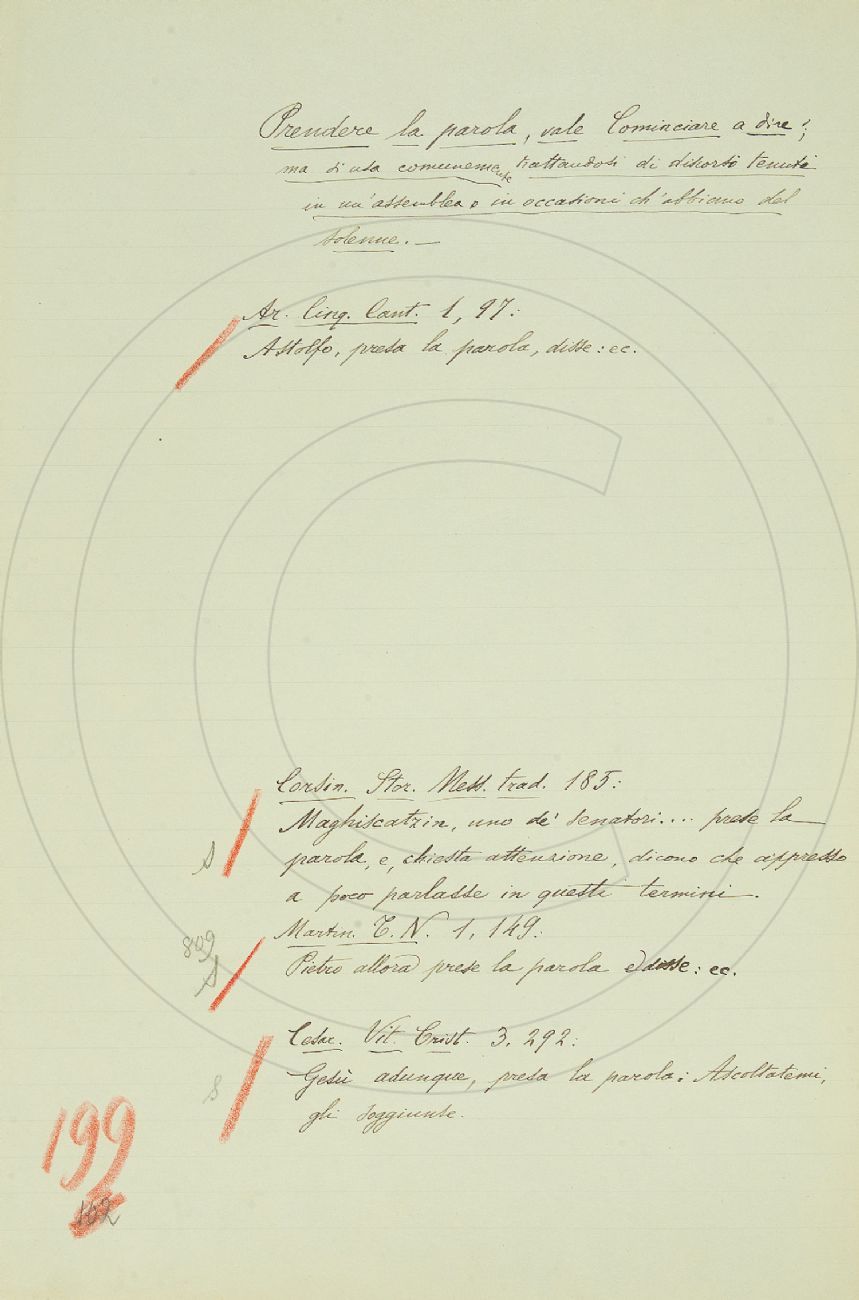 Prendere la parola, vale Cominciare a dire;
ma si usa comunemente trattandosi di discorsi tenuti
in un'assemblea o in occasioni ch'abbiano del
solenne. —
Ar. Cinq. Cant. 1, 97:
Astolfo, presa la parola, disse: ec.
Corsin. Stor. Mess. trad. 185:
Maghiscatzin, uno de' senatori.... prese la
parola, e, chiesta attenzione, dicono che appresso
S
a poco parlasse in questi termini.
Martin. T. N. 1, 149:
809
Pietro allora prese la parola e disse: ec.
S
Cesar. Vit. Crist. 3, 292:
Gesù adunque, presa la parola: Ascoltatemi,
S
gli soggiunse.
199
102